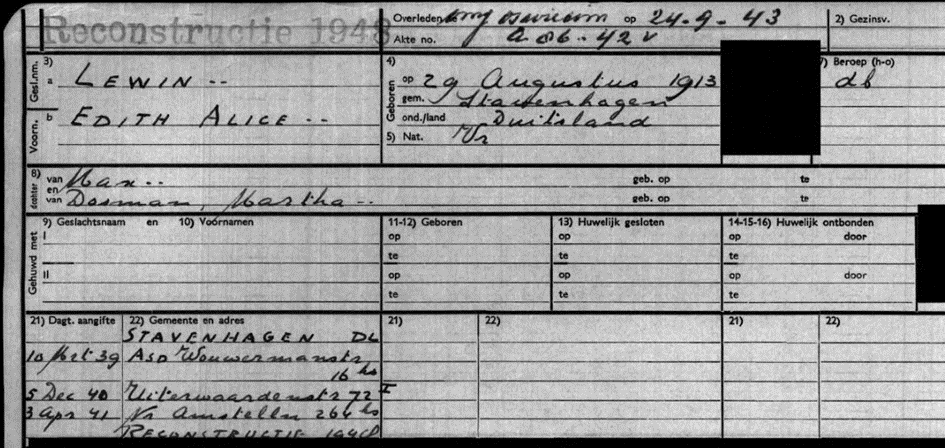 Reconstructie 1948
Overleden te omg Auschwitz op 24-9-43
2) Gezinsv.
Akte no. A 86-42 v
Gesl.nm. 3) a LEWIN --
Voorn. b EDITH ALICE --
4) Geboren op 29 Augustus 1913
gem. Stavenhagen
ond./land Duitsland
5) Nat. Vr
7) Beroep (h-o)
db
8) dochter van Max --
geb. op te
en van Dosman, Martha --
geb. op te
Gehuwd met
9) Geslachtsnaam en 10) Voornamen
11-12) Geboren
13) Huwelijk gesloten
14-15-16) Huwelijk ontbonden
I op op op door
te te te
II op op op door
te te te
21) Dagt. aangifte 22) Gemeente en adres
21) 22) 21) 22)
STAVENHAGEN DL
10 Mrt 39 Asd Wouwermanstr
16 hs
5 Dec 40 Uiterwaardenstr 72 I
3 Apr 41 Nr Amstelln 264 hs
RECONSTRUCTIE 1948